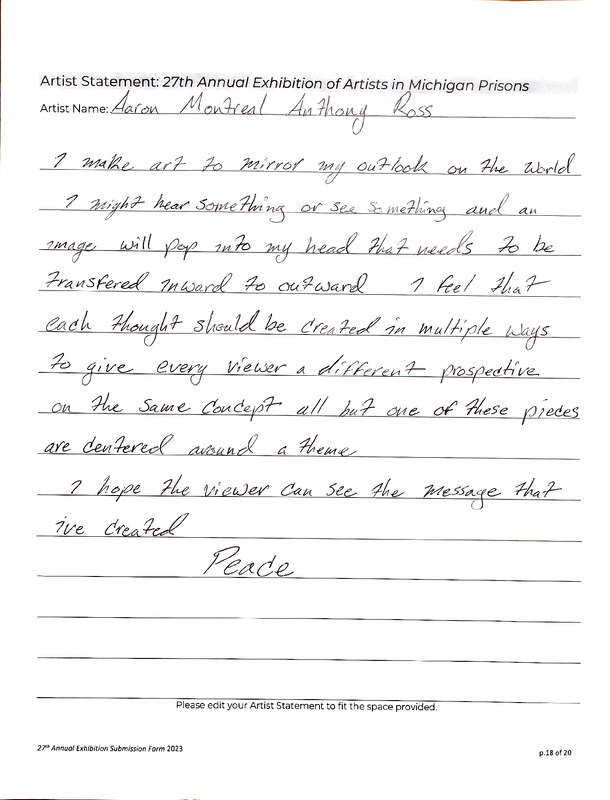 Artist Statement: 27th Annual Exhibition of Artists in Michigan Prisons
Artist Name: Aaron Montreal Anthony Ross
I make art to mirror my outlook on the world
I might hear something or see something and an
image will pop into my head that needs to be
transfered inward to outward I feel that
each thought should be created in multiple ways
to give every viewer a different prospective
on the same concept all but one of these pieces
are centered around a theme
I hope the viewer can see the message that
ive created
Peace
Please edit your Artist Statement to fit the space provided.
27th Annual Exhibition Submission Form 2023
p.18 of 20